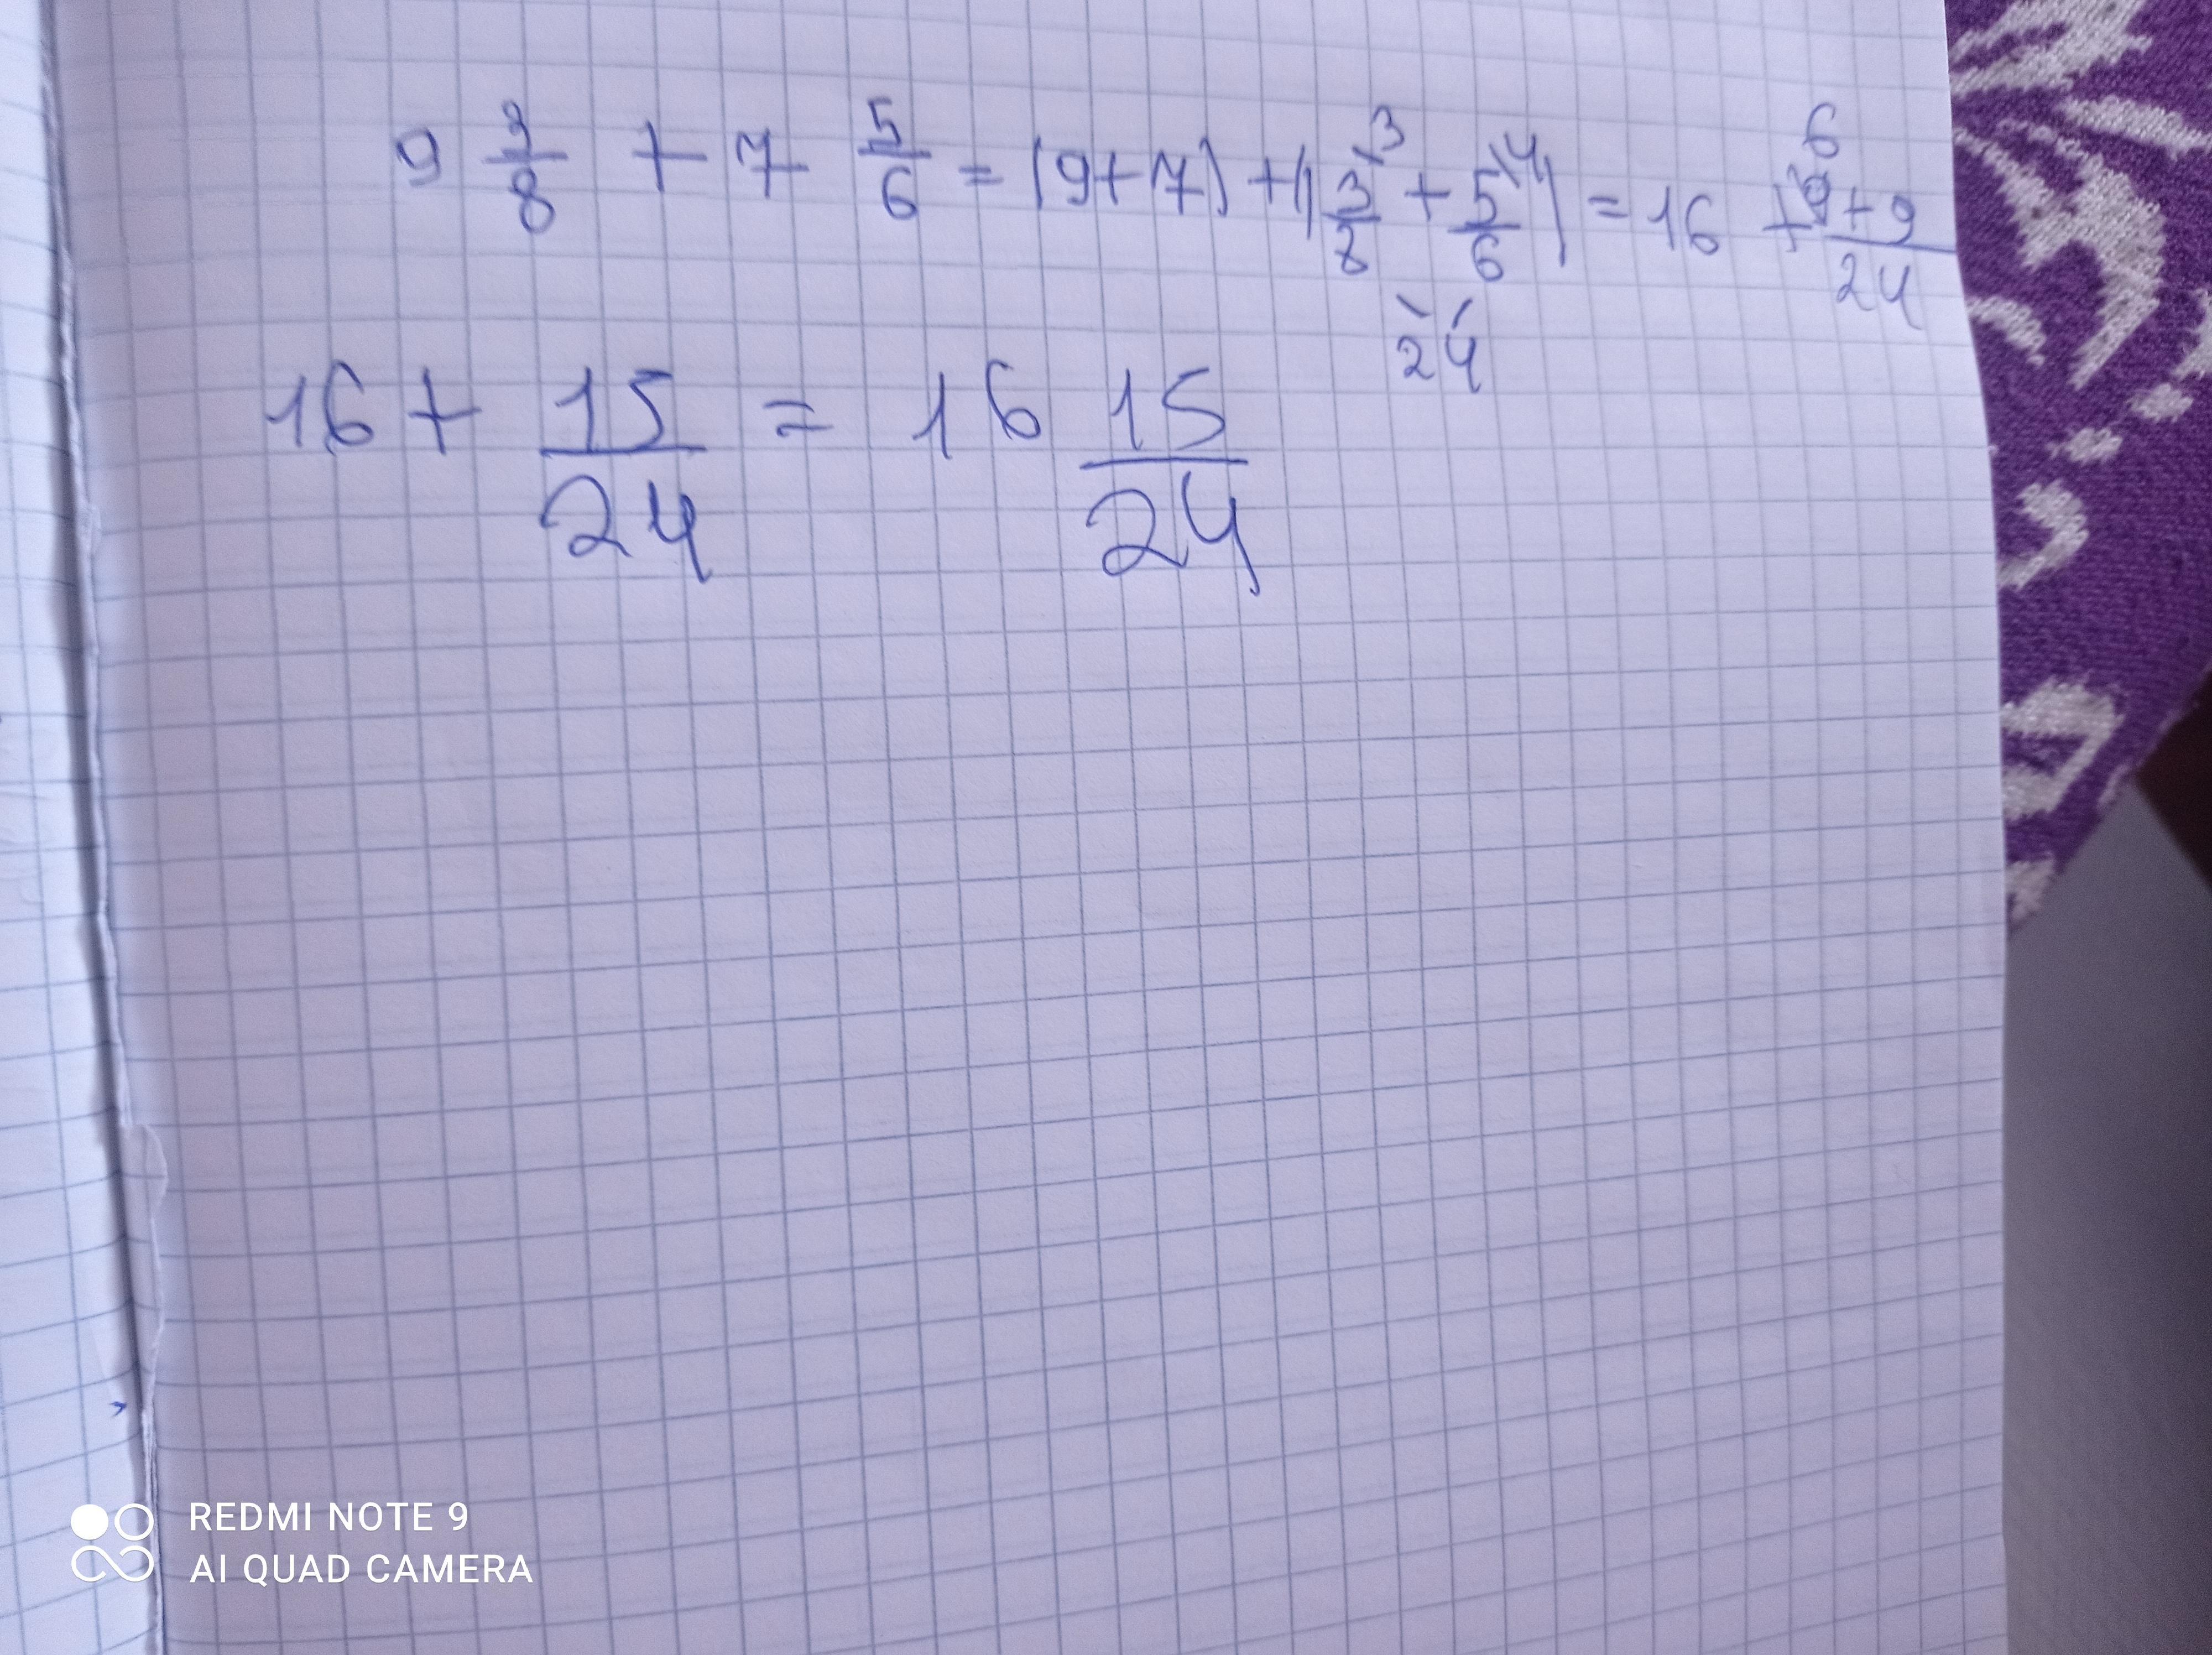 9 3/8 + 7 5/6 = (9+7) + (3\3/8 + 5\4/6) = 16 + 6+9/24
24
16 + 15/24 = 16 15/24
REDMI NOTE 9
AI QUAD CAMERA